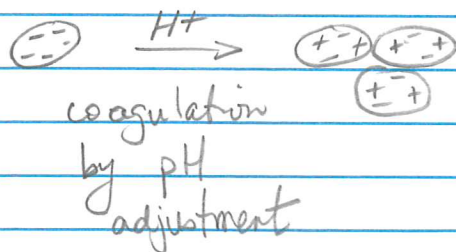 H+
coagulation
by pH
adjustment